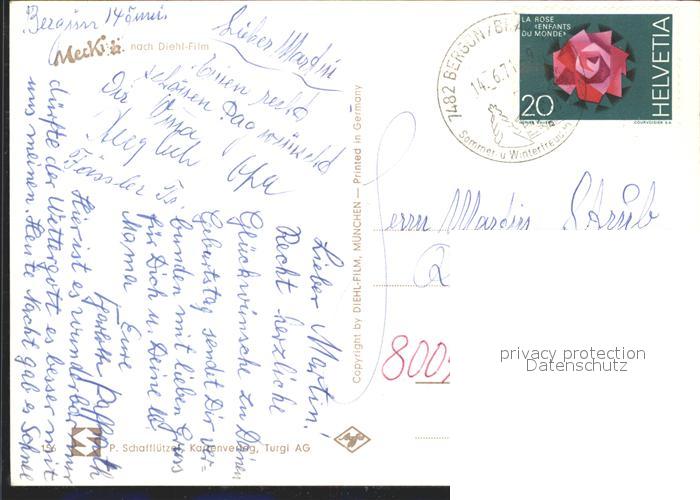 Bergün 14. Juni
Mecki
nach Diehl-Film
Lieber Martin
Einen recht
schönen Tag wünscht
Dir Oma
Opa
Lieber Martin.
Recht herzliche
Glückwünsche zu Deinem
Geburtstag sendt Dir ver-
bunden mit lieben Grüss
für Dich u. Deine lb.
Mama
Eure
Hier ist es wunderbar nur
dürfte der Wettergott es besser mit
uns meinen. Heute Nacht gab es Schnee
156
P. Schafflützel, Kartenverlag, Turgi AG
Copyright by DIEHL-FILM, MÜNCHEN — Printed in Germany
Agfa
7482 BERGÜN/BRA
14.6.71
Sommer- u. Wintertreu
LA ROSE
«ENFANTS
DU MONDE»
20
HELVETIA
COURVOISIER S.A.
Herrn Martin Strub
800
privacy protection
Datenschutz